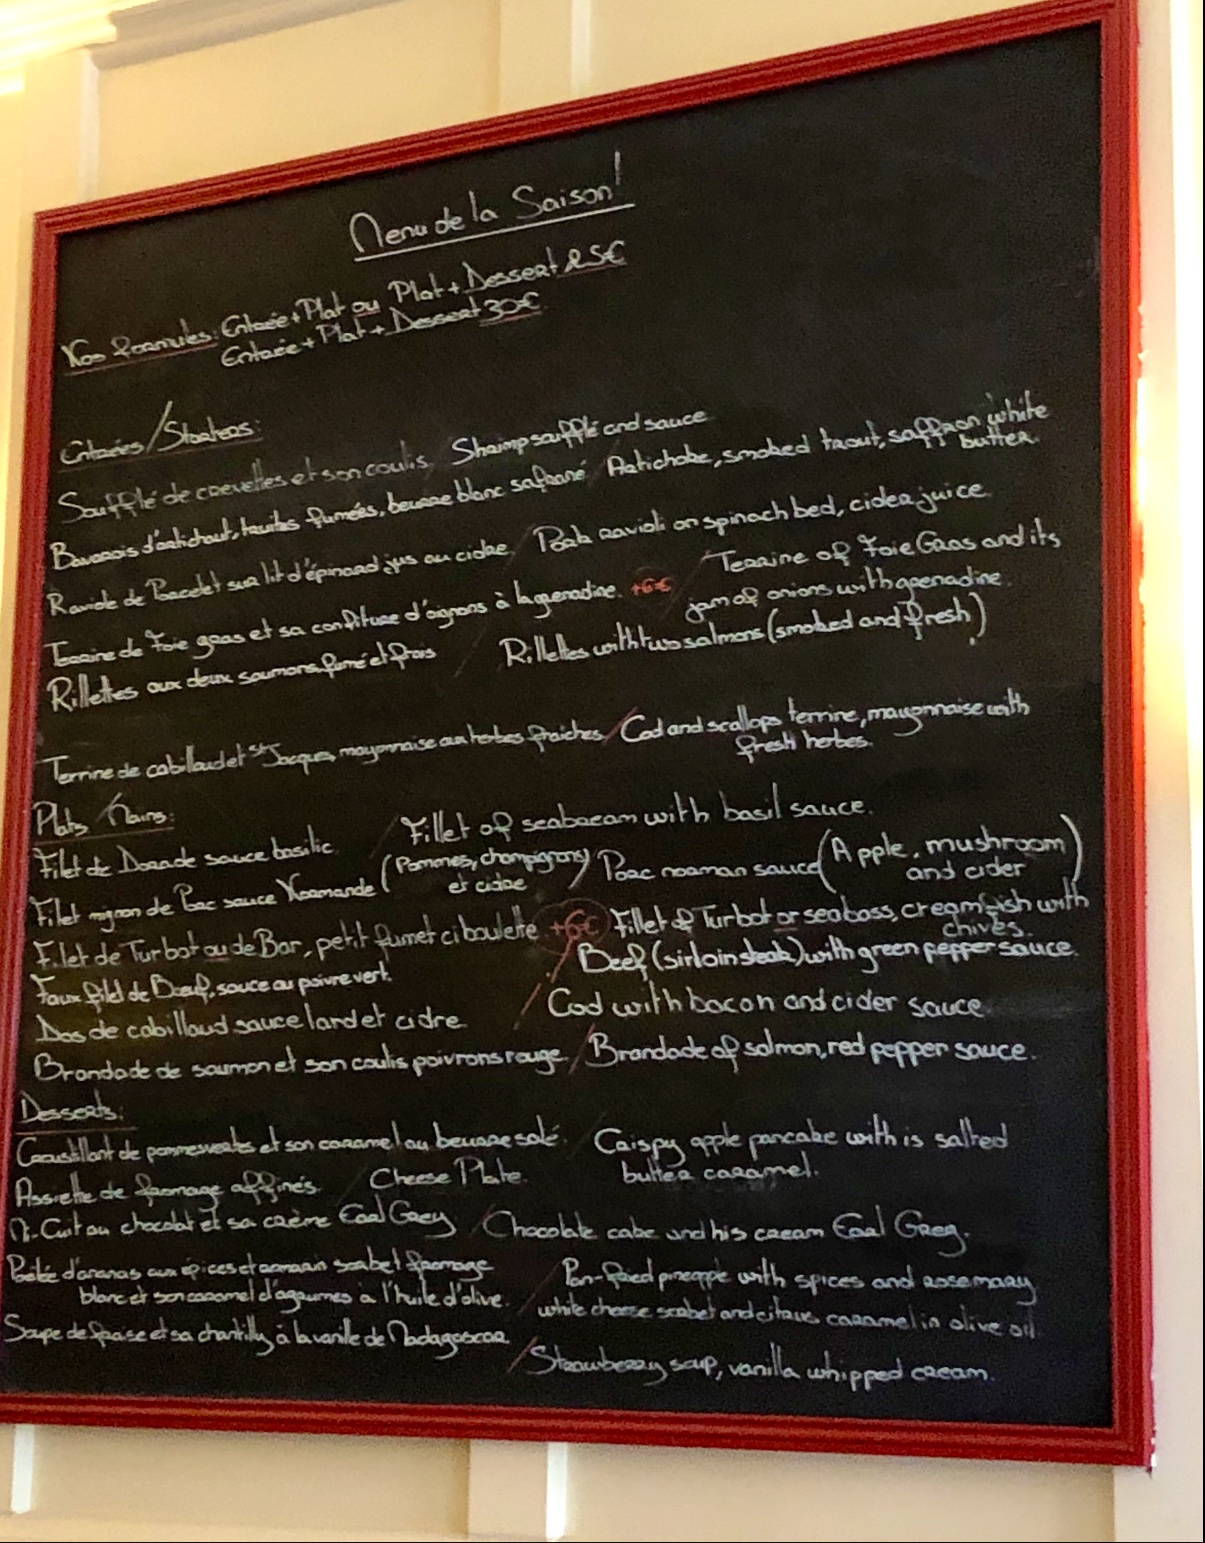 Menu de la Saison!
Nos formules: Entrée + Plat ou Plat + Dessert 25€
Entrée + Plat + Dessert 30€
Entrées / Starters:
Soufflé de crevettes et son coulis / Shrimp soufflé and sauce
Bavarois d'artichaut, truites fumées, beurre blanc safrané / Artichoke, smoked trout, saffron white
butter.
Raviole de Porcelet sur lit d'épinard jus au cidre / Pork ravioli on spinach bed, cider juice
Terrine de Foie gras et sa confiture d'oignons à la grenadine. +6€ / Terrine of Foie Gras and its
jam of onions with grenadine.
Rillettes aux deux saumons, fumé et frais / Rillettes with two salmons (smoked and fresh)
Terrine de cabillaud et St Jacques, mayonnaise aux herbes fraiches / Cod and scallops terrine, mayonnaise with
fresh herbes.
Plats / Mains:
Filet de Dorade sauce basilic. / Fillet of seabream with basil sauce.
Filet mignon de Porc sauce Normande (Pommes, champignons / Porc norman sauce (Apple, mushroom
et cidre) and cider)
Filet de Turbot ou de Bar, petit fumet ciboulette +6€ / Fillet of Turbot or seabass, cream fish with
chives.
Faux filet de Bœuf, sauce au poivre vert. / Beef (sirloin steak) with green pepper sauce.
Dos de cabillaud sauce lard et cidre / Cod with bacon and cider sauce
Brandade de saumon et son coulis poivrons rouge / Brandade of salmon, red pepper sauce.
Desserts:
Croustillant de pommes vertes et son caramel au beurre salé. / Crispy apple pancake with is salted
butter caramel.
Assiette de fromage affinés / Cheese Plate.
Mi-Cuit au chocolat et sa crème Earl Grey / Chocolate cake and his cream Earl Grey.
Poêlée d'ananas aux épices et romarin sorbet fromage / Pan-fried pineapple with spices and rosemary
blanc et son caramel d'agrumes à l'huile d'olive. / white cheese sorbet and citrus caramel in olive oil.
Soupe de fraise et sa chantilly à la vanille de Madagascar
/ Strawberry soup, vanilla whipped cream.